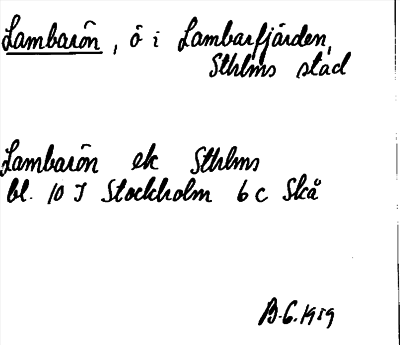 Lambarön, ö i Lambarfjärden,
Sthlms stad
Lambarön ek Sthlms
bl. 10 I Stockholm 6 c Skå
B.G. 1959